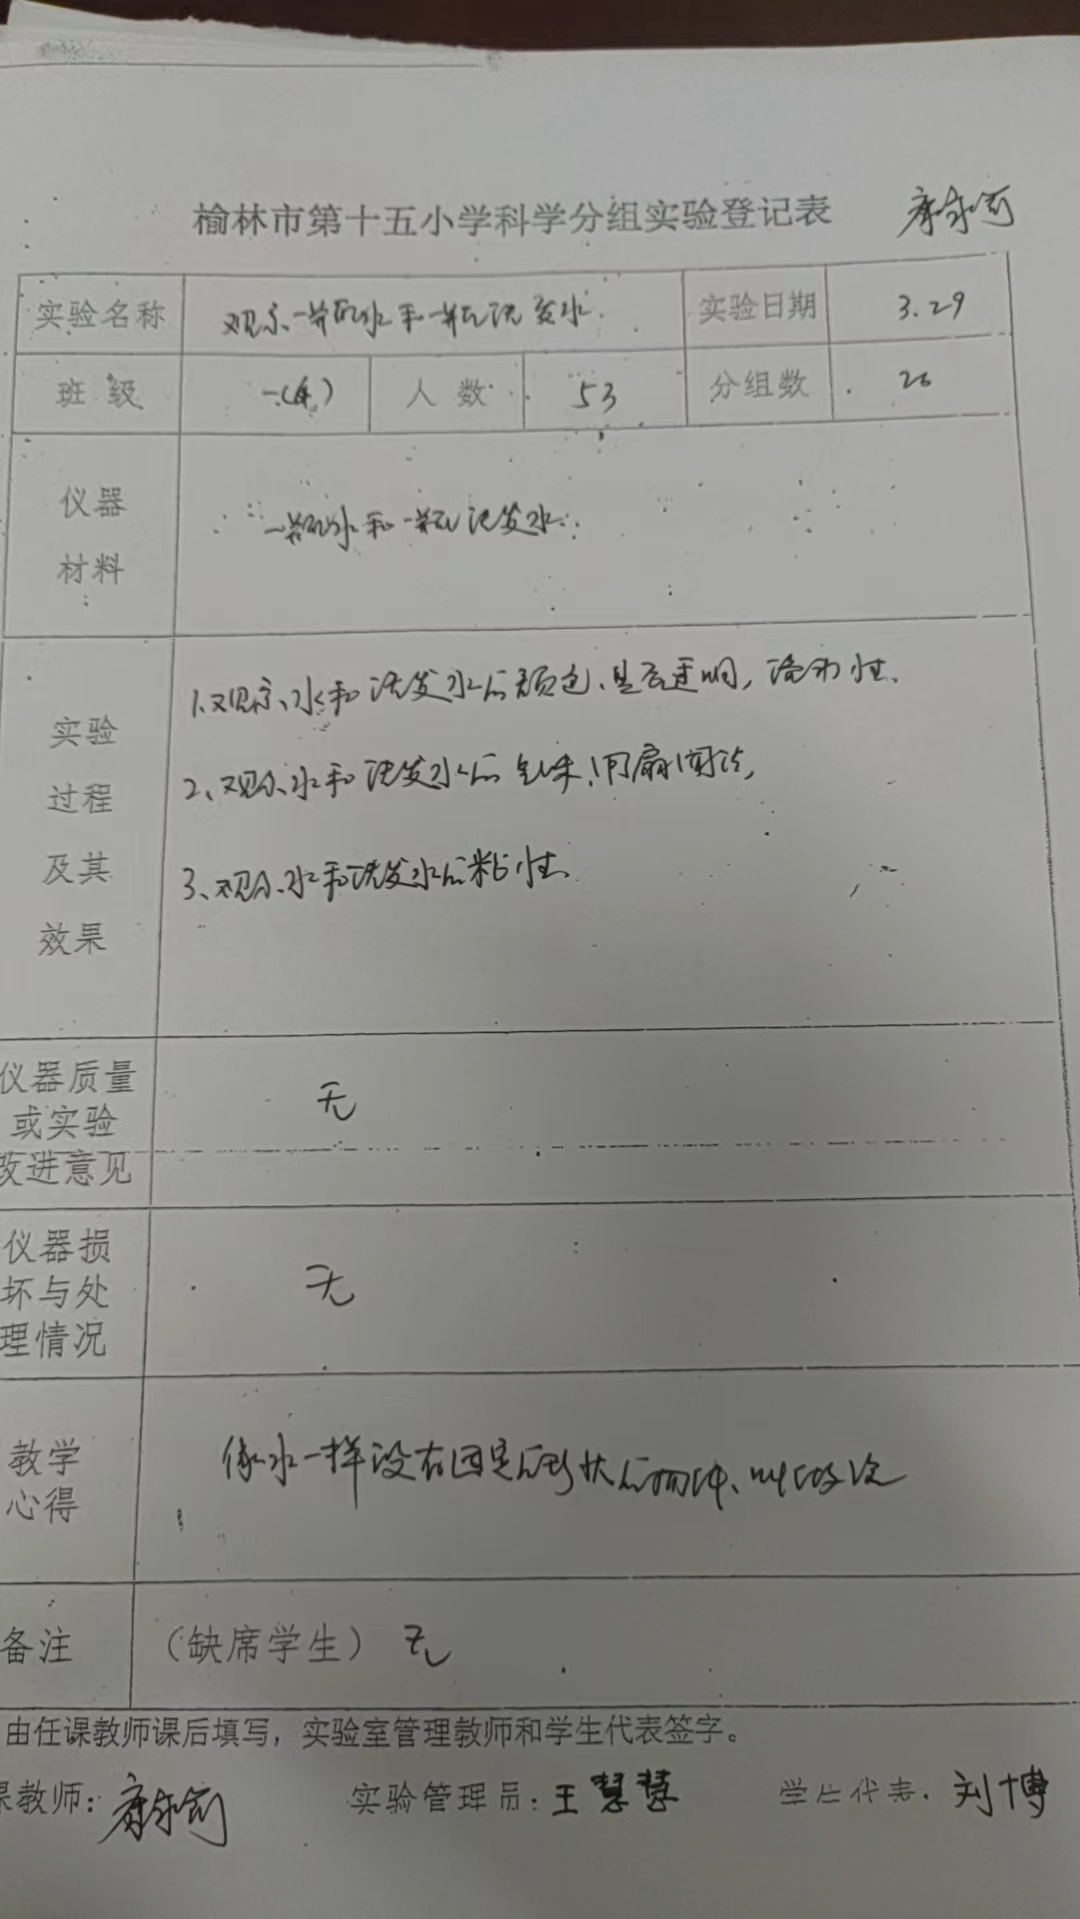 榆林市第十五小学科学分组实验登记表
实验名称 观察一瓶水和一瓶洗发水 实验日期 3.29
班级 一(4) 人数 53 分组数 26
仪器
材料
一瓶水和一瓶洗发水
实验
过程
及其
效果
1、观察水和洗发水的颜色、是否透明，流动性、
2、观察水和洗发水的气味，用扇闻法，
3、观察水和洗发水的粘性、
仪器质量
或实验
改进意见
无
仪器损
坏与处
理情况
无
教学
心得
像水一样没有固定的形状的物体、叫做液
备注 （缺席学生）无
由任课教师课后填写，实验室管理教师和学生代表签字。
课教师： 实验管理员：王慧慧 学生代表：刘博